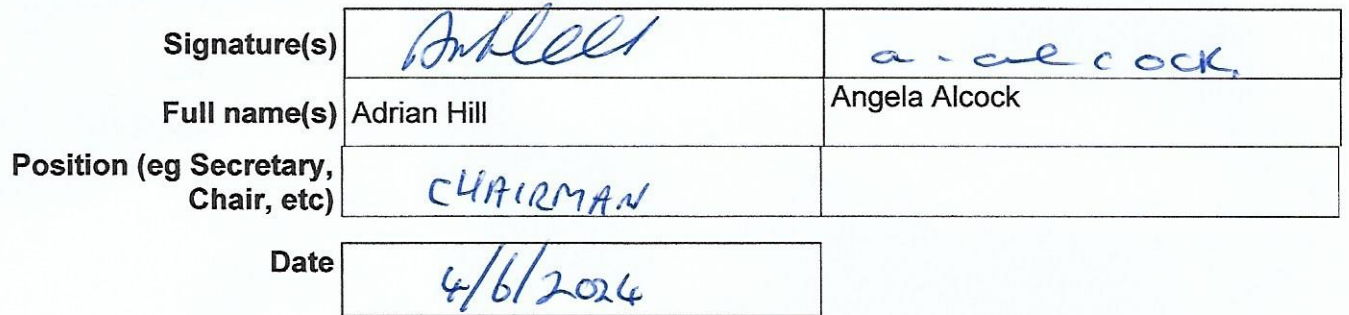 Signature(s) a. alcock
Full name(s) Adrian Hill Angela Alcock
Position (eg Secretary,
Chair, etc) CHAIRMAN
Date 4/6/2024